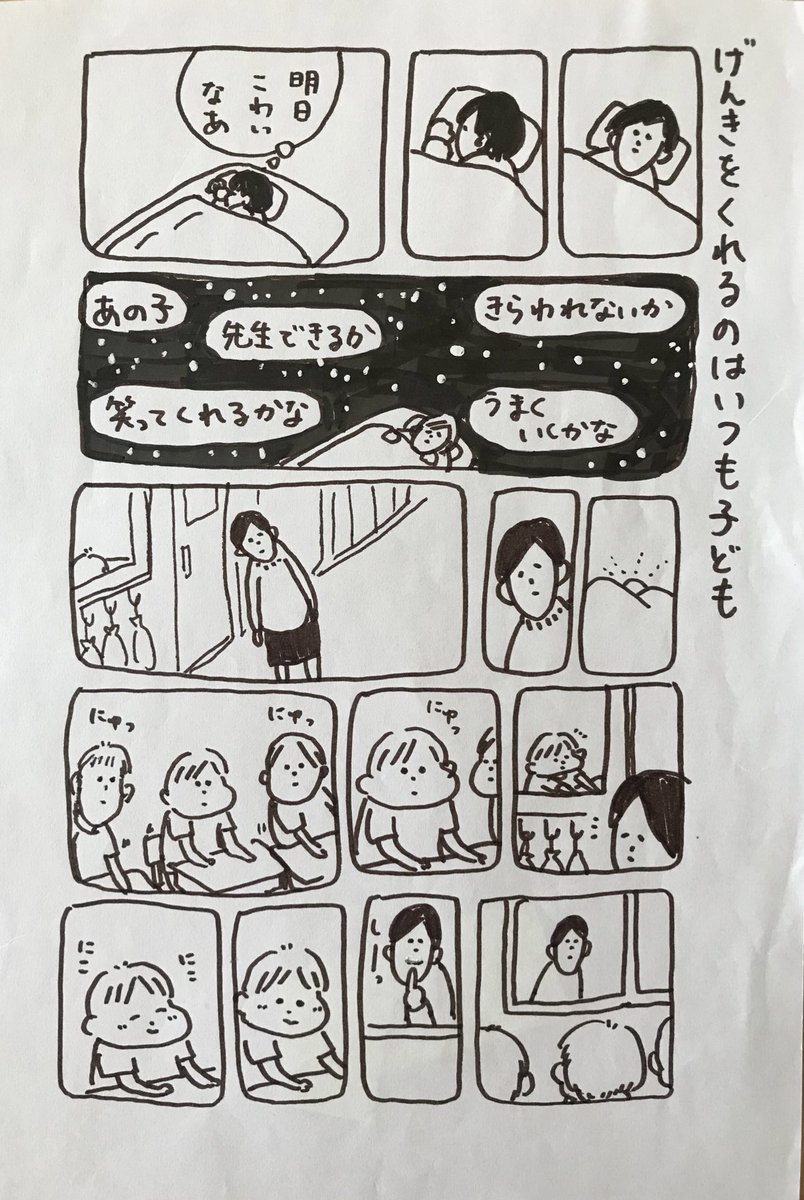 げんきをくれるのはいつも子ども
明日
こわい
なあ
きらわれないか
うまく
いくかな
先生できるか
あの子
笑ってくれるかな
にゅっ
にゅっ
にゅっ
しーっ
に
に